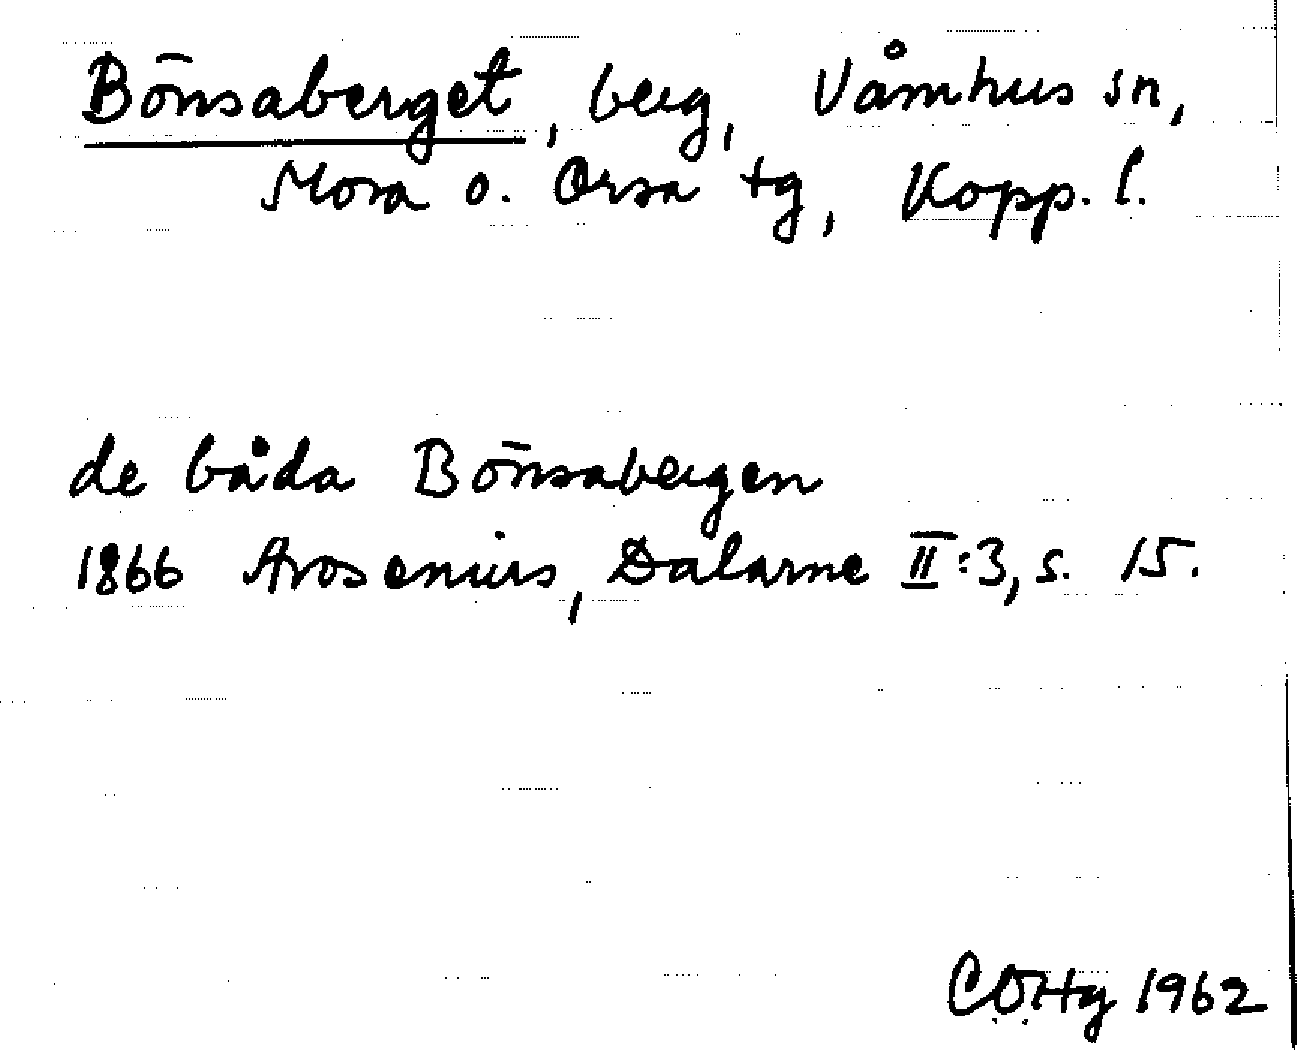 Bönsaberget, berg, Våmhus sn,
Mora o. Orsa tg, Kopp. l.
de båda Bönsabergen
1866 Arosenius, Dalarne II:3, s. 15.
C.O.Hg 1962